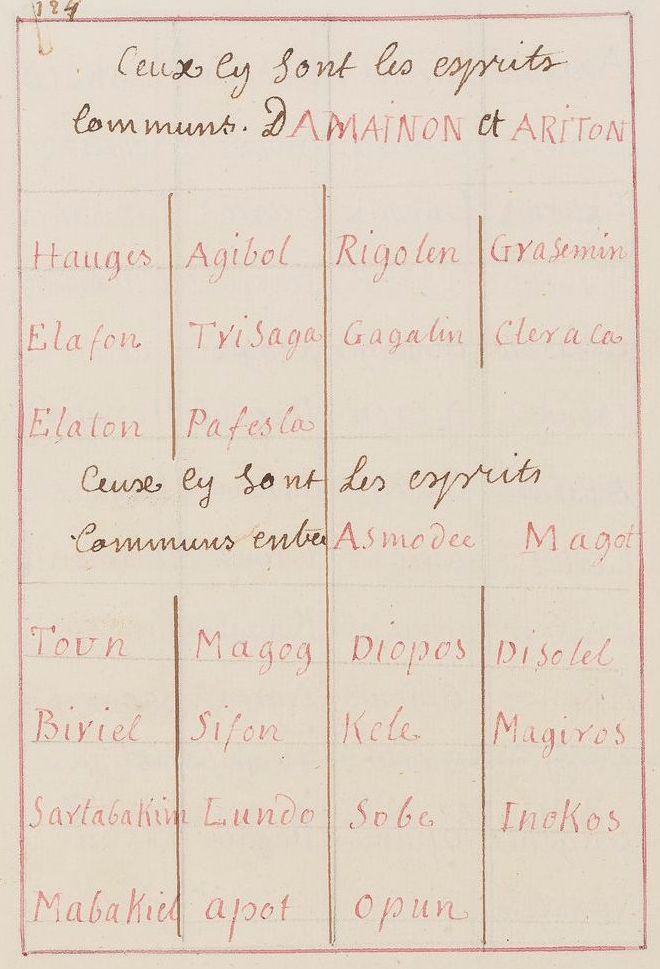 124
Ceux cy sont les esprits
communs. DAMAINON et ARITON
Hauges Agibol Rigolen Grasemin
Elafon Trisaga Gagalin Cleraca
Elaton Pafesla
Ceux cy sont Les esprits
Communs entre Asmodee Magot
Toun Magog Diopos Disolel
Biriel Sifon Kele Magiros
Sartabakim Lundo Sobe Inokos
Mabakiel apot opun